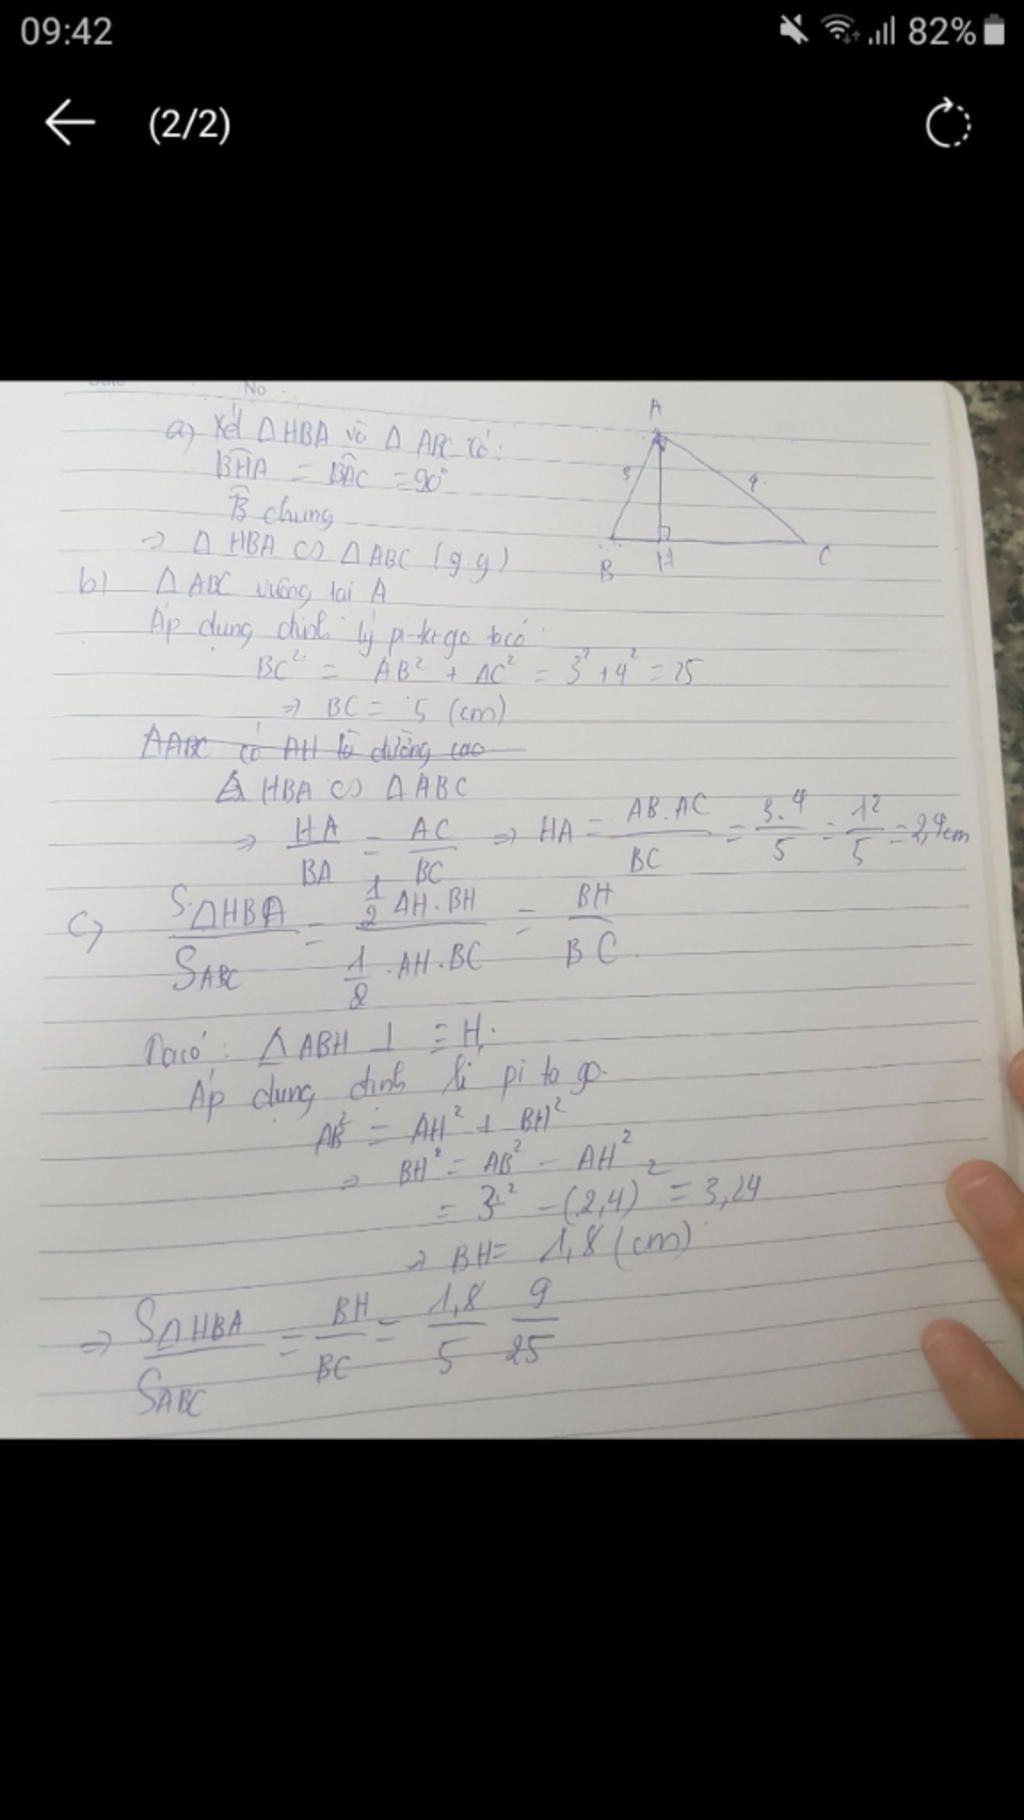 09:42 82%
(2/2)
No
A
a) Xét ΔHBA và Δ ABC có:
BHA = BAC = 90°
3 4
B chung
=> Δ HBA ∽ Δ ABC (g.g)
B H C
b) Δ ABC vuông tại A
Áp dụng định lý pi-ta-go ta có:
BC² = AB² + AC² = 3² + 4² = 25
=> BC = 5 (cm)
ΔABC có AH là đường cao
Δ HBA ∽ Δ ABC
=> HA/BA = AC/BC => HA = AB.AC/BC = 3.4/5 = 12/5 = 2,4cm
c) SΔHBA/SABC = 1/2 AH.BH / 1/2 .AH.BC = BH/BC
Ta có: Δ ABH ⊥ = H.
Áp dụng định lí pi ta go
AB² = AH² + BH²
=> BH² = AB² - AH²
= 3² - (2,4)² = 3,24
=> BH = 1,8 (cm)
=> SΔHBA/SABC = BH/BC = 1,8/5 9/25